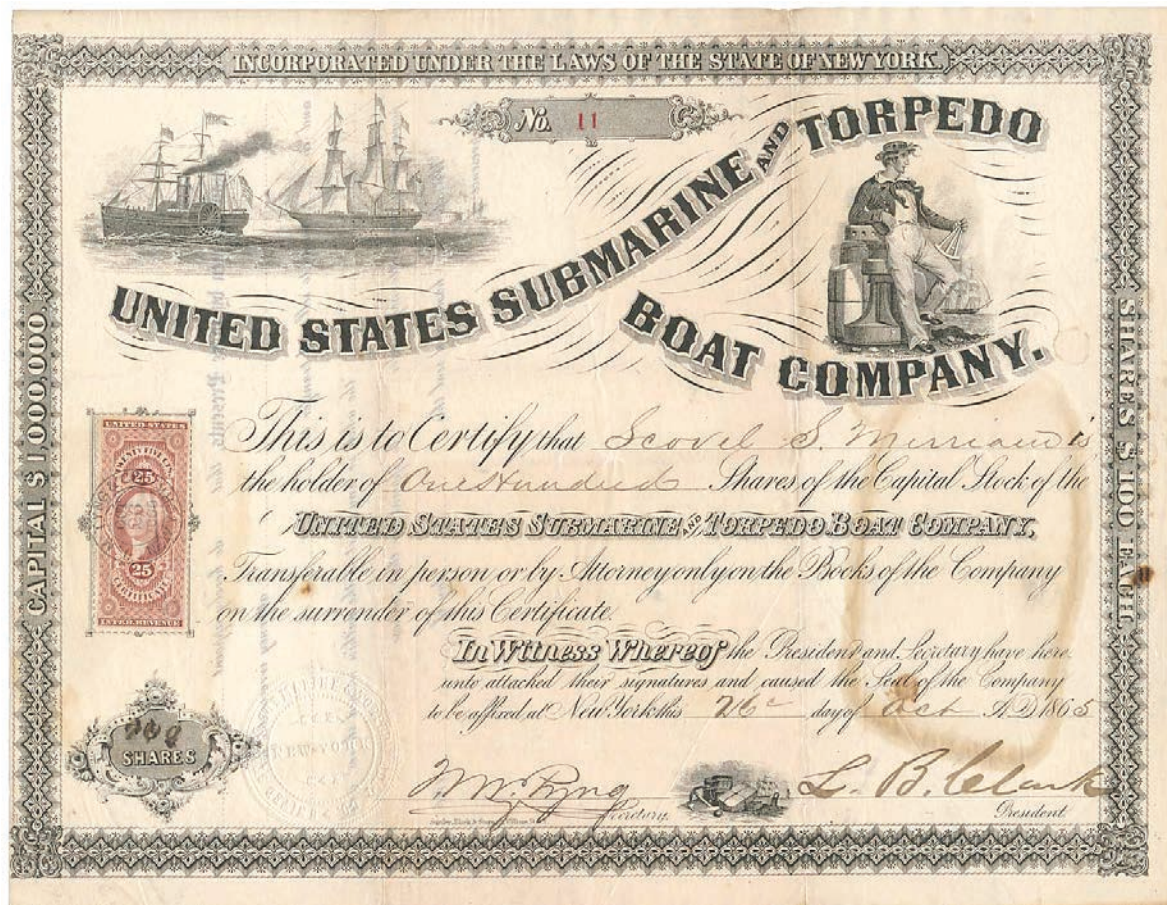 INCORPORATED UNDER THE LAWS OF THE STATE OF NEW YORK.
No. 11
UNITED STATES SUBMARINE AND TORPEDO
BOAT COMPANY.
CAPITAL $1,000,000
SHARES $100 EACH
UNITED STATES
25
25
CERTIFICATE
INTER. REVENUE
This is to Certify that Scovel S. Merriam is
the holder of One Hundred Shares of the Capital Stock of the
UNITED STATES SUBMARINE AND TORPEDO BOAT COMPANY,
Transferable in person or by Attorney only on the Books of the Company
on the surrender of this Certificate.
In Witness Whereof the President and Secretary have here
unto attached their signatures and caused the Seal of the Company
to be affixed at New York this 26 day of Oct A.D. 1865
100
SHARES
Secretary.
L. B. Clark
President.